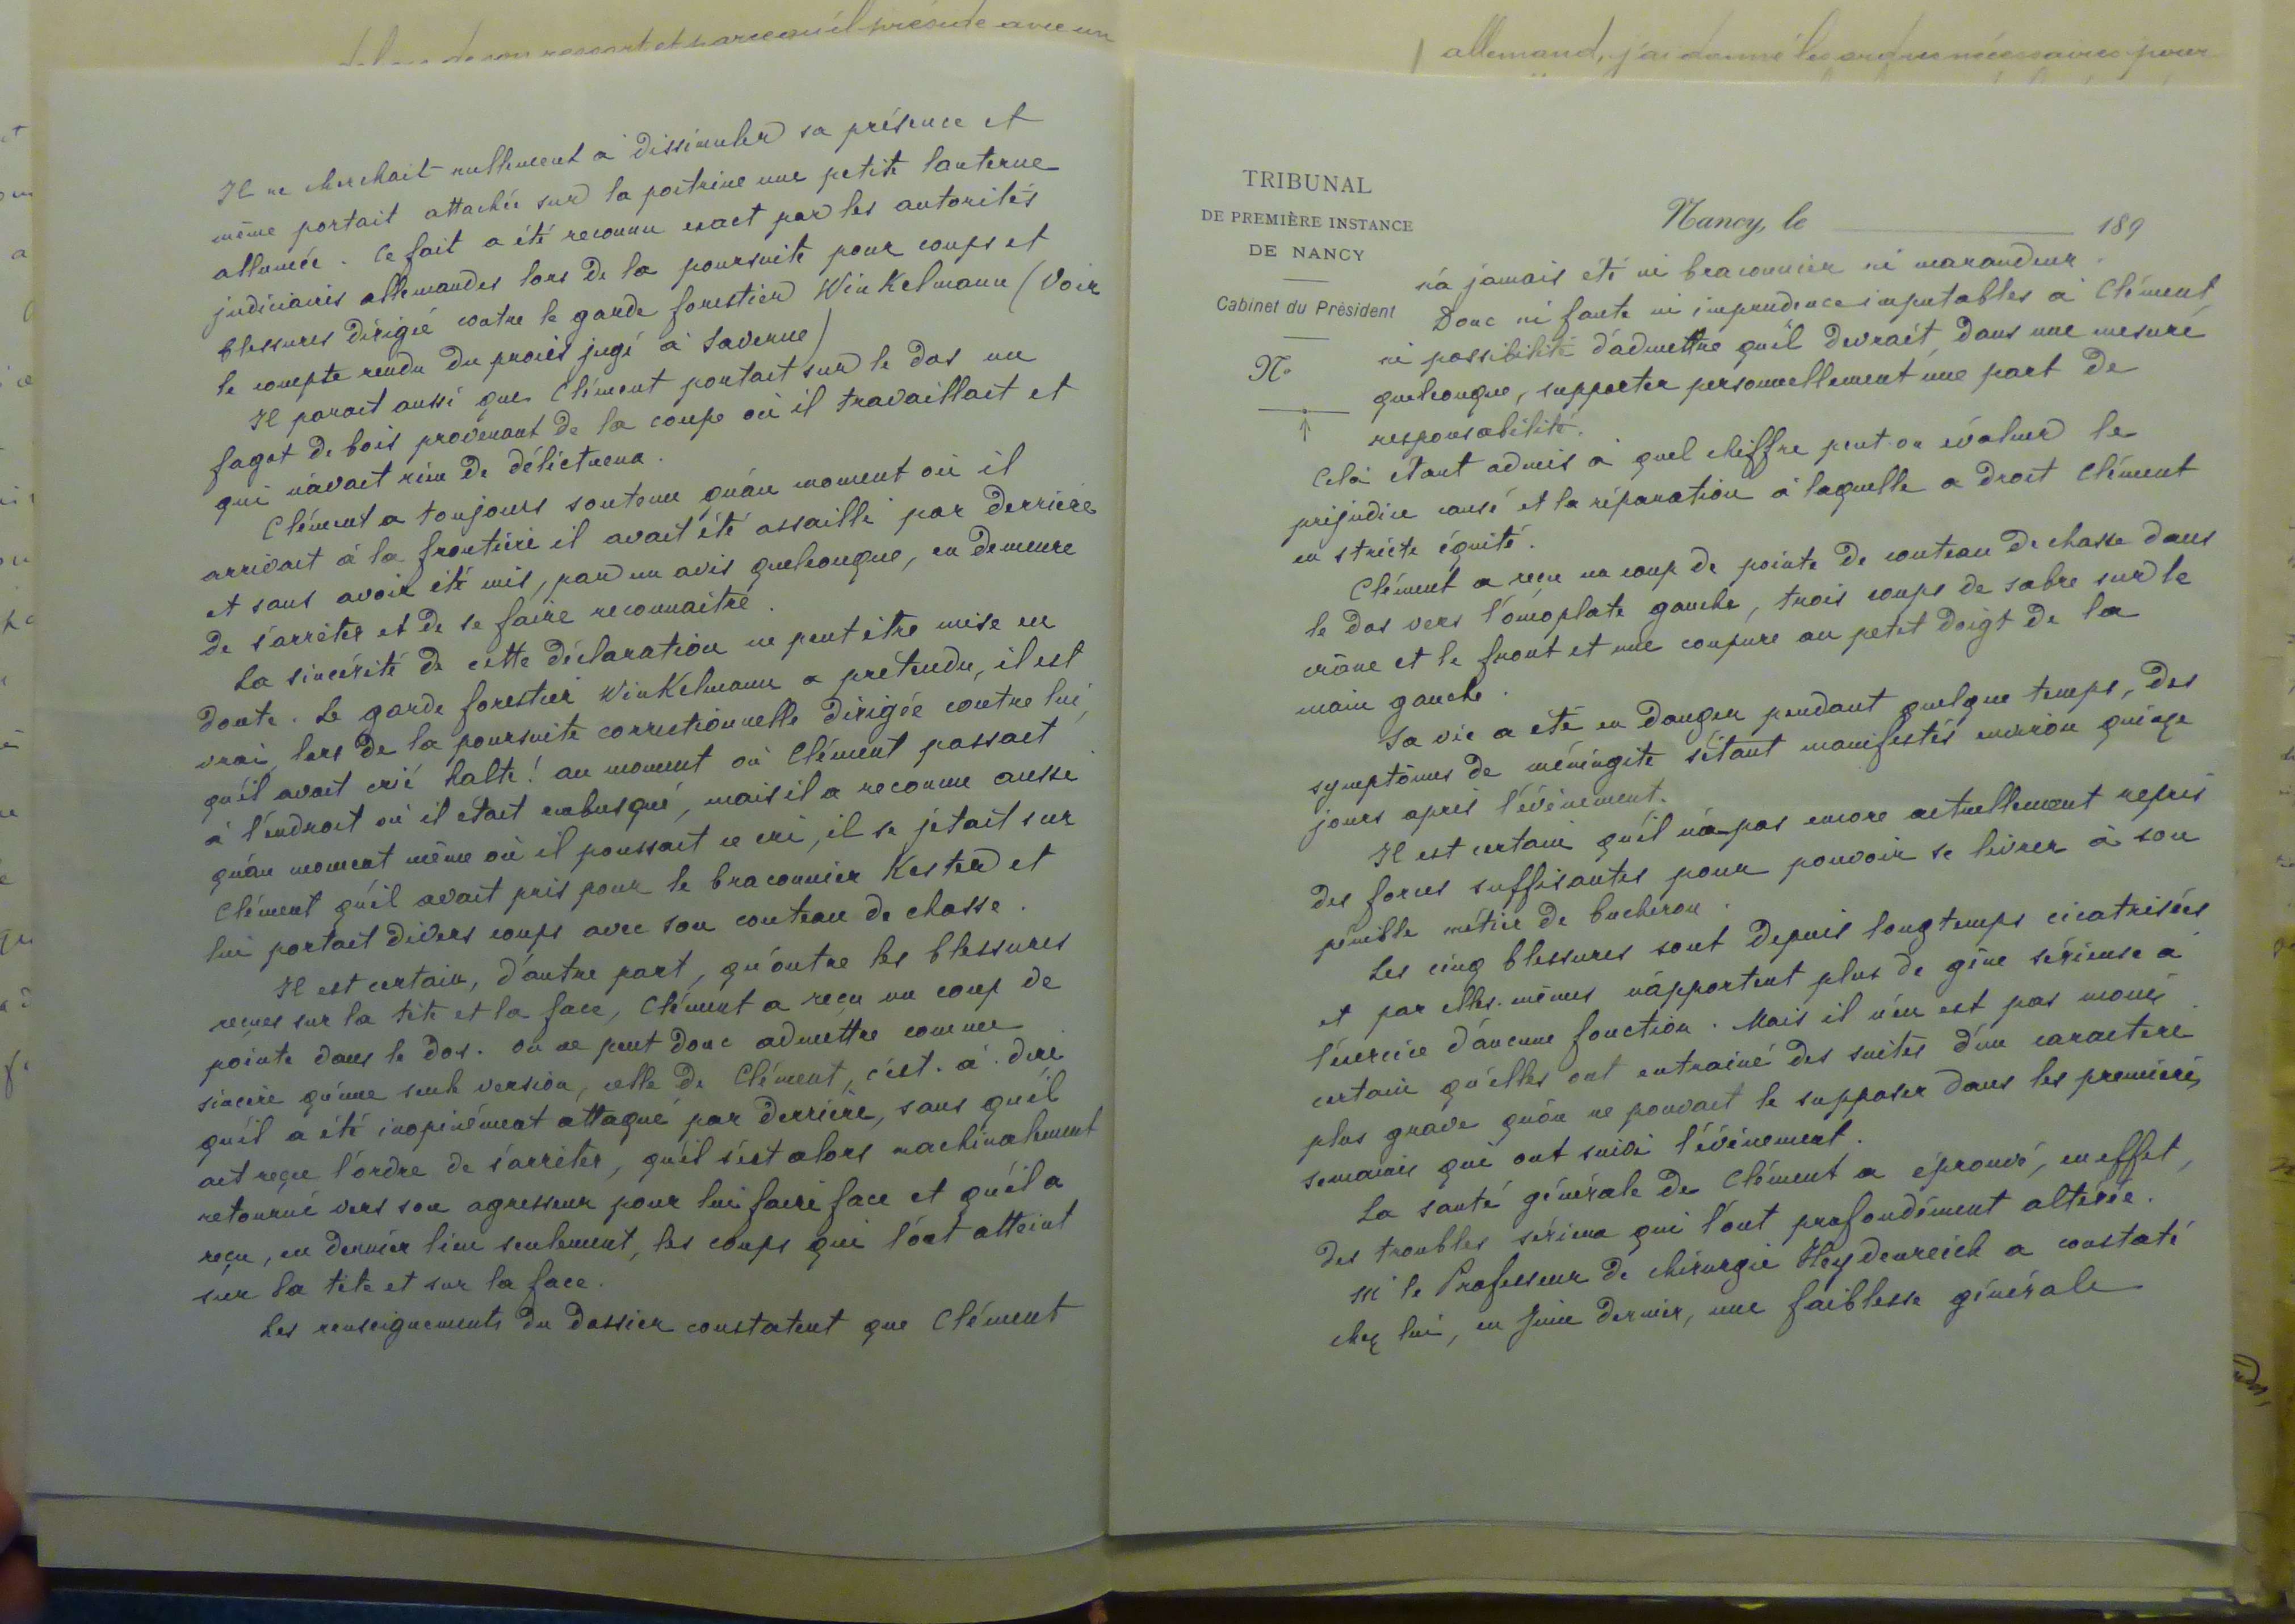 Il ne cherchait nullement à dissimuler sa présence et
même portait attachée sur la poitrine une petite lanterne
allumée. Ce fait a été reconnu exact par les autorités
judiciaires allemandes lors de la poursuite pour coups et
blessures dirigée contre le garde forestier WinKelmann (Voir
le compte rendu du procès jugé à Saverne)
Il parait aussi que Clément portait sur le dos un
fagot de bois provenant de la coupe où il travaillait et
qui n'avait rien de délictueux.
Clément a toujours soutenu qu'au moment où il
arrivait à la frontière il avait été assailli par derrière
et sans avoir été mis, par un avis quelconque, en demeure
de s'arrêter et de se faire reconnaitre.
La sincérité de cette déclaration ne peut être mise en
doute. Le garde forestier WinKelmann a prétendu, il est
vrai, lors de la poursuite correctionnelle dirigée contre lui,
qu'il avait crié halte! au moment où Clément passait
à l'endroit où il était embusqué, mais il a reconnu aussi
qu'au moment même où il poussait ce cri, il se jetait sur
Clément qu'il avait pris pour le braconnier Kester et
lui portait divers coups avec son couteau de chasse.
Il est certain, d'autre part, qu'outre les blessures
reçues sur la tête et la face, Clément a reçu un coup de
pointe dans le dos. On ne peut donc admettre comme
sincère qu'une seule version, celle de Clément, c'est-à-dire
qu'il a été inopinément attaqué par derrière, sans qu'il
ait reçu l'ordre de s'arrêter, qu'il s'est alors machinalement
retourné vers son agresseur pour lui faire face et qu'il a
reçu, en dernier lieu seulement, les coups qui l'ont atteint
sur la tête et sur la face.
Les renseignements du dossier constatent que Clément
allemand, j'ai donné les ordres nécessaires pour
TRIBUNAL
DE PREMIÈRE INSTANCE
DE NANCY
Cabinet du Président
N°
Nancy, le 189
n'a jamais été ni braconnier ni maraudeur.
Donc ni faute ni imprudence imputables à Clément,
ni possibilité d'admettre qu'il devrait, dans une mesure
quelconque, supporter personnellement une part de
responsabilité.
Celà étant admis à quel chiffre peut-on évaluer le
préjudice causé et la réparation à laquelle a droit Clément
en stricte équité.
Clément a reçu un coup de pointe de couteau de chasse dans
le dos vers l'omoplate gauche, trois coups de sabre sur le
crâne et le front et une coupure au petit doigt de la
main gauche.
Sa vie a été en danger pendant quelque temps, des
symptômes de méningite s'étant manifestés environ quinze
jours après l'événement.
Il est certain qu'il n'a pas encore actuellement repris
des forces suffisantes pour pouvoir se livrer à son
pénible métier de bucheron.
Les cinq blessures sont depuis longtemps cicatrisées
et par elles-mêmes n'apportent plus de gêne sérieuse à
l'exercice d'aucune fonction. Mais il n'en est pas moins
certain qu'elles ont entrainé des suites d'un caractère
plus grave qu'on ne pouvait le supposer dans les premières
semaines qui ont suivi l'événement.
La santé générale de Clément a éprouvé, en effet,
des troubles sérieux qui l'ont profondément altérée.
Mr le Professeur de chirurgie Heydenreich a constaté
chez lui, en Juin dernier, une faiblesse générale